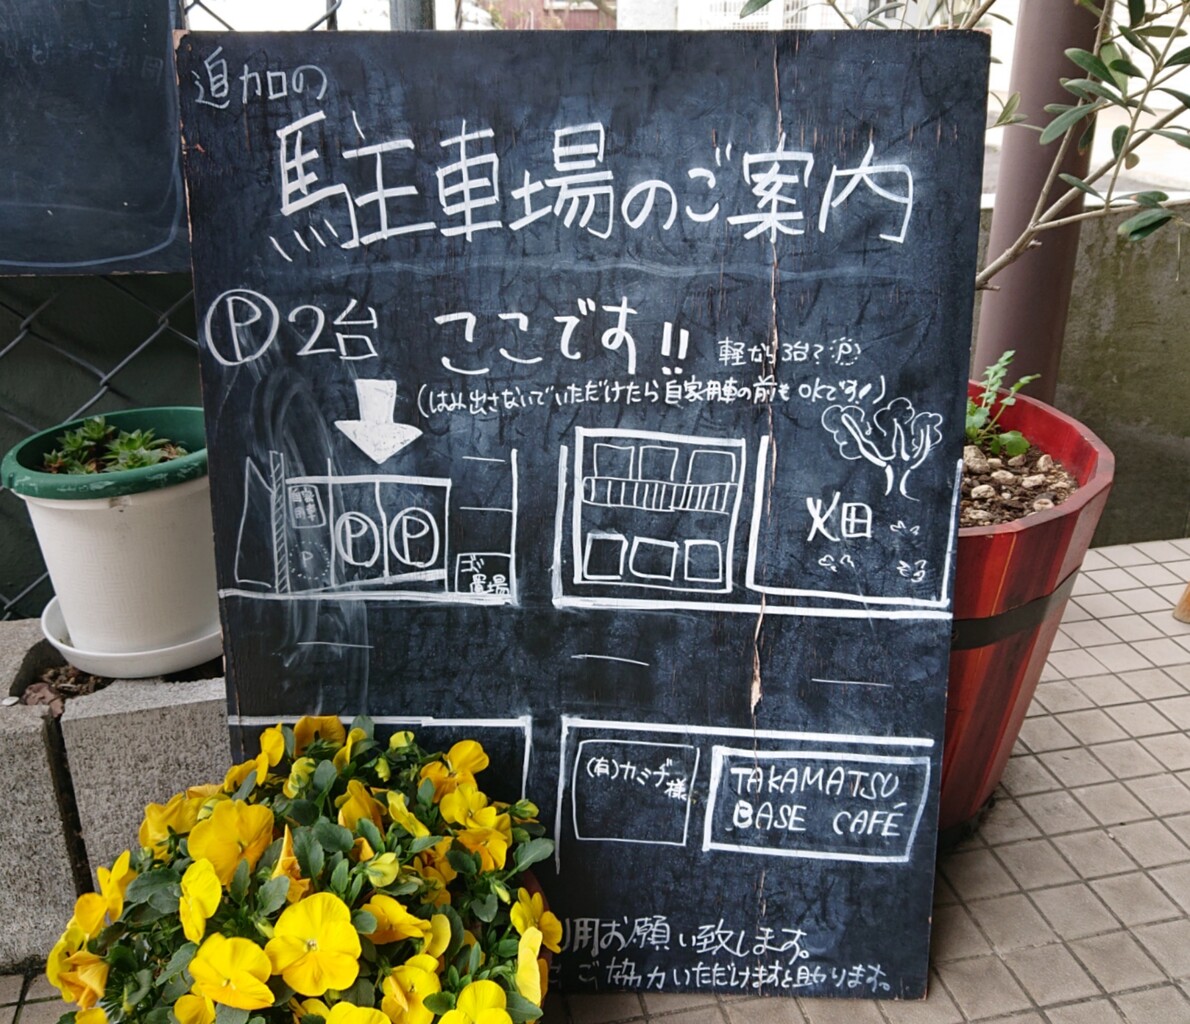 追加の
駐車場のご案内
Ⓟ2台 ここです!!
軽なら3台?Ⓟ
(はみ出さないでいただけたら自家用車の前もOKです!)
自家用車
P
P P
ゴミ置場
畑
(有)カミヂ様
TAKAMATSU
BASE CAFÉ
用お願い致します。
ご協力いただけますと助かります。